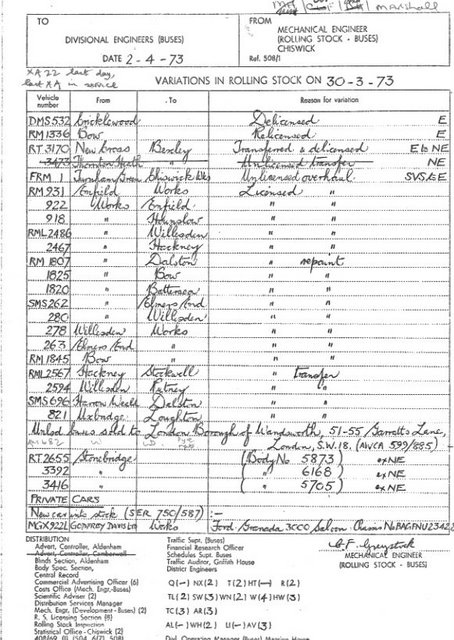 marshall
TO
DIVISIONAL ENGINEERS (BUSES)
DATE 2-4-73
FROM
MECHANICAL ENGINEER
(ROLLING STOCK - BUSES)
CHISWICK
Ref. 508/1
XA 22 last day,
last XA in service
VARIATIONS IN ROLLING STOCK ON 30-3-73
Vehicle number From To Reason for variation
DMS532 Cricklewood Delicensed E
RM1336 Bow Relicensed E
RT3170 New Cross Bexley Transferred & delicensed E to NE
3473 Thornton Heath " Unlicensed transfer NE
FRM 1 Turnham Green Chiswick Wks Unlicensed overhaul SVS,EE
RM931 Enfield Works Licensed "
922 Works Enfield " "
918 " Hounslow " "
RML2486 " Willesden " "
2467 " Hackney " "
RM1807 " Dalston " repaint
1825 " Bow " "
1820 " Battersea " "
SMS262 " Elmers End " "
280 " Willesden " "
278 Willesden Works " "
263 Elmers End " " "
RM1845 Bow " " "
RML2567 Hackney Stockwell " transfer
2594 Willesden Putney " "
SMS696 Harrow Weald Dalston " "
821 Uxbridge Loughton " "
Unlsd buses sold to London Borough of Wandsworth, 51-55 Garratts Lane,
London, S.W.18. (AWCA 599/885) -
RT2655 Stonebridge (Body No 5873) ex NE
3392 " ( " 6168) ex NE
3416 " ( " 5705) ex NE
PRIVATE CARS
New car into stock (SER 750/587) :-
MGX922L Godfrey Davis Ltd Works Ford Granada 3000 Saloon. Chassis No BAGFNU2342
DISTRIBUTION
Advert. Controller, Aldenham
Advert. Controller, Camberwell
Blinds Section, Aldenham
Body Spec. Section,
Central Record
Commercial Advertising Officer (6)
Costs Office (Mech. Engr.-Buses)
Scientific Adviser (2)
Distribution Services Manager
Mech. Engr. (Development - Buses) (2)
R. S. Licensing Section
Rolling Stock Inspection
Statistical Office - Chiswick (2)
Traffic Supt. (Buses)
Financial Research Officer
Schedules Supt. Buses
Traffic Auditor, Griffith House
District Engineers
Q(-) NX(2) T(2) HT(-) R(2)
TL(2) SW(3) WN(2) W(4) HW(3)
TC(3) AR(3)
AL(-) WH(2) LI(-) AV(3)
C.F. Greystock
MECHANICAL ENGINEER
(ROLLING STOCK - BUSES)